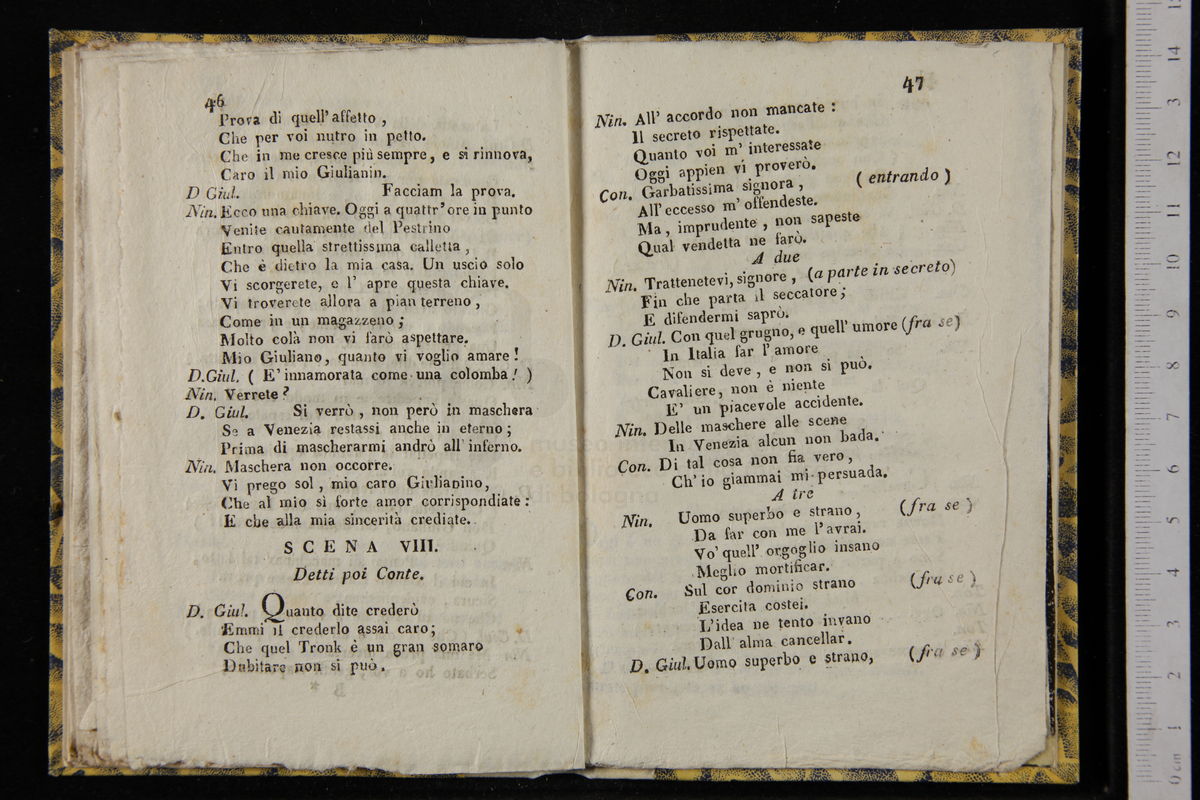 46
Prova di quell' affetto ,
Che per voi nutro in petto.
Che in me cresce più sempre, e si rinnova,
Caro il mio Giulianin.
D Giul. Facciam la prova.
Nin. Ecco una chiave. Oggi a quattr' ore in punto
Venite cautamente del Pestrino
Entro quella strettissima calletta ,
Che è dietro la mia casa. Un uscio solo
Vi scorgerete, e l' apre questa chiave.
Vi troverete allora a pian terreno ,
Come in un magazzeno ;
Molto colà non vi farò aspettare.
Mio Giuliano, quanto vi voglio amare !
D.Giul. ( E' innamorata come una colomba ! )
Nin. Verrete ?
D. Giul. Si verrò , non però in maschera
Se a Venezia restassi anche in eterno ;
Prima di mascherarmi andrò all' inferno.
Nin. Maschera non occorre.
Vi prego sol , mio caro Giulianino,
Che al mio sì forte amor corrispondiate :
E che alla mia sincerità crediate.
SCENA VIII.
Detti poi Conte.
D. Giul. Quanto dite crederò
Emmi il crederlo assai caro;
Che quel Tronk è un gran somaro
Dubitare non si può.
B *
47
Nin. All' accordo non mancate :
Il secreto rispettate.
Quanto voi m' interessate
Oggi appien vi proverò.
Con. Garbatissima signora , ( entrando )
All' eccesso m' offendeste.
Ma , imprudente , non sapeste
Qual vendetta ne farò.
A due
Nin. Trattenetevi, signore , (a parte in secreto)
Fin che parta il seccatore ;
E difendermi saprò.
D. Giul. Con quel grugno, e quell' umore (fra se)
In Italia far l' amore
Non si deve , e non si può.
Cavaliere, non è niente
E' un piacevole accidente.
Nin. Delle maschere alle scene
In Venezia alcun non bada.
Con. Di tal cosa non fia vero ,
Ch' io giammai mi persuada.
A tre
Nin. Uomo superbo e strano , (fra se )
Da far con me l' avrai.
Vo' quell' orgoglio insano
Meglio mortificar.
Con. Sul cor dominio strano (fra se )
Esercita costei.
L'idea ne tento invano
Dall' alma cancellar.
D. Giul. Uomo superbo e strano, (fra se )